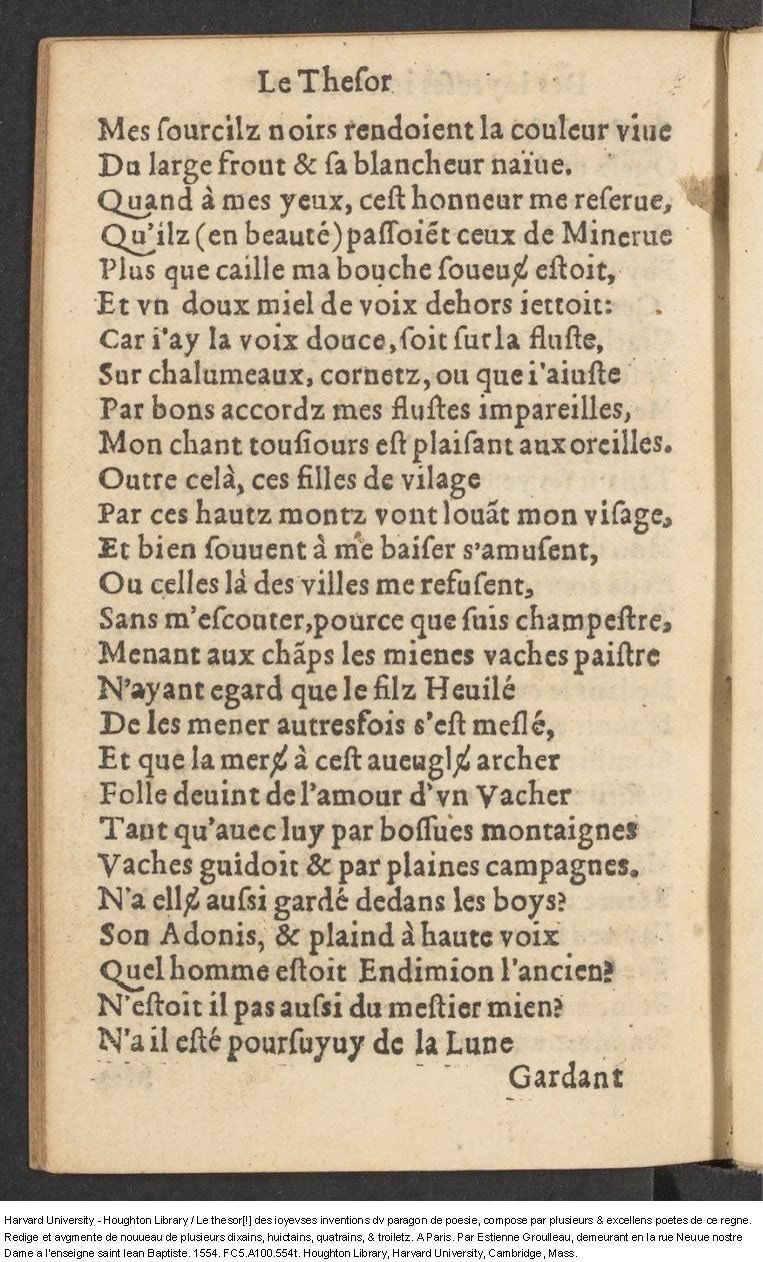 Le Theſor
Mes ſourcilz noirs rendoient la couleur viue
Du large front & ſa blancheur naïue.
Quand à mes yeux, ceſt honneur me reſerue,
Qu'ilz (en beauté) paſſoiẽt ceux de Minerue
Plus que caille ma bouche ſoueuɇ eſtoit,
Et vn doux miel de voix dehors iettoit:
Car i'ay la voix douce, ſoit ſur la fluſte,
Sur chalumeaux, cornetz, ou que i'aiuſte
Par bons accordz mes fluſtes impareilles,
Mon chant touſiours eſt plaiſant aux oreilles.
Outre celà, ces filles de vilage
Par ces hautz montz vont louãt mon viſage,
Et bien ſouuent à me baiſer s'amuſent,
Ou celles là des villes me refuſent,
Sans m'eſcouter, pource que ſuis champeſtre,
Menant aux chãps les mienes vaches paiſtre
N'ayant egard que le filz Heuilé
De les mener autresfois s'eſt meſlé,
Et que la merɇ à ceſt aueuglɇ archer
Folle deuint de l'amour d'vn Vacher
Tant qu'auec luy par boſſues montaignes
Vaches guidoit & par plaines campagnes.
N'a ellɇ auſsi gardé dedans les boys?
Son Adonis, & plaind à haute voix
Quel homme eſtoit Endimion l'ancien?
N'eſtoit il pas auſsi du meſtier mien?
N'a il eſté pourſuyuy de la Lune
Gardant
Harvard University - Houghton Library / Le thesor[!] des ioyevses inventions dv paragon de poesie, compose par plusieurs & excellens poetes de ce regne.
Redige et avgmente de nouueau de plusieurs dixains, huictains, quatrains, & troiletz. A Paris. Par Estienne Groulleau, demeurant en la rue Neuue nostre
Dame a l'enseigne saint Iean Baptiste. 1554. FC5.A100.554t. Houghton Library, Harvard University, Cambridge, Mass.